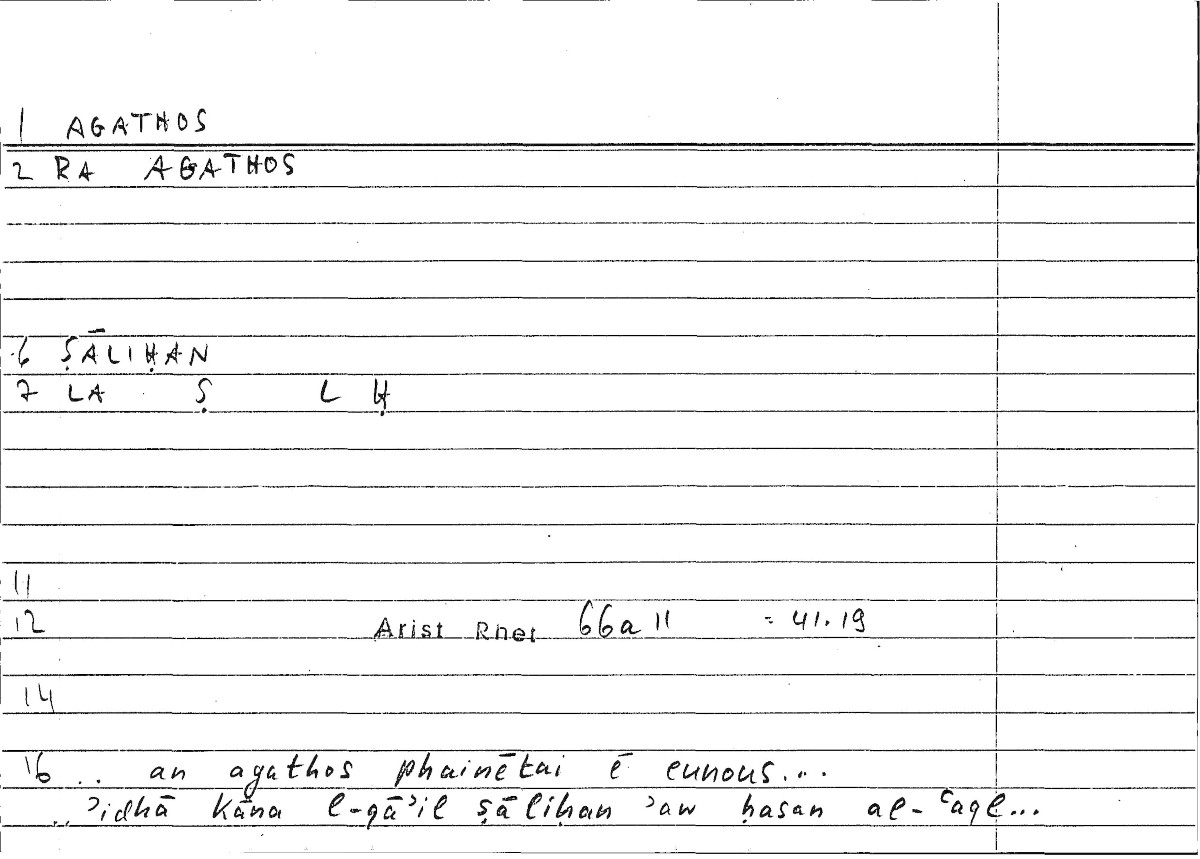 1 AGATHOS
2 RA AGATHOS
6 ṢĀLIḤAN
7 LA Ṣ L Ḥ
11
12 Arist Rhet 66a11 = 41.19
14
16 .. an agathos phainētai ē eunous...
.. ʾidhā kāna l-qāʾil ṣāliḥan ʾaw ḥasan al-ʿaql...